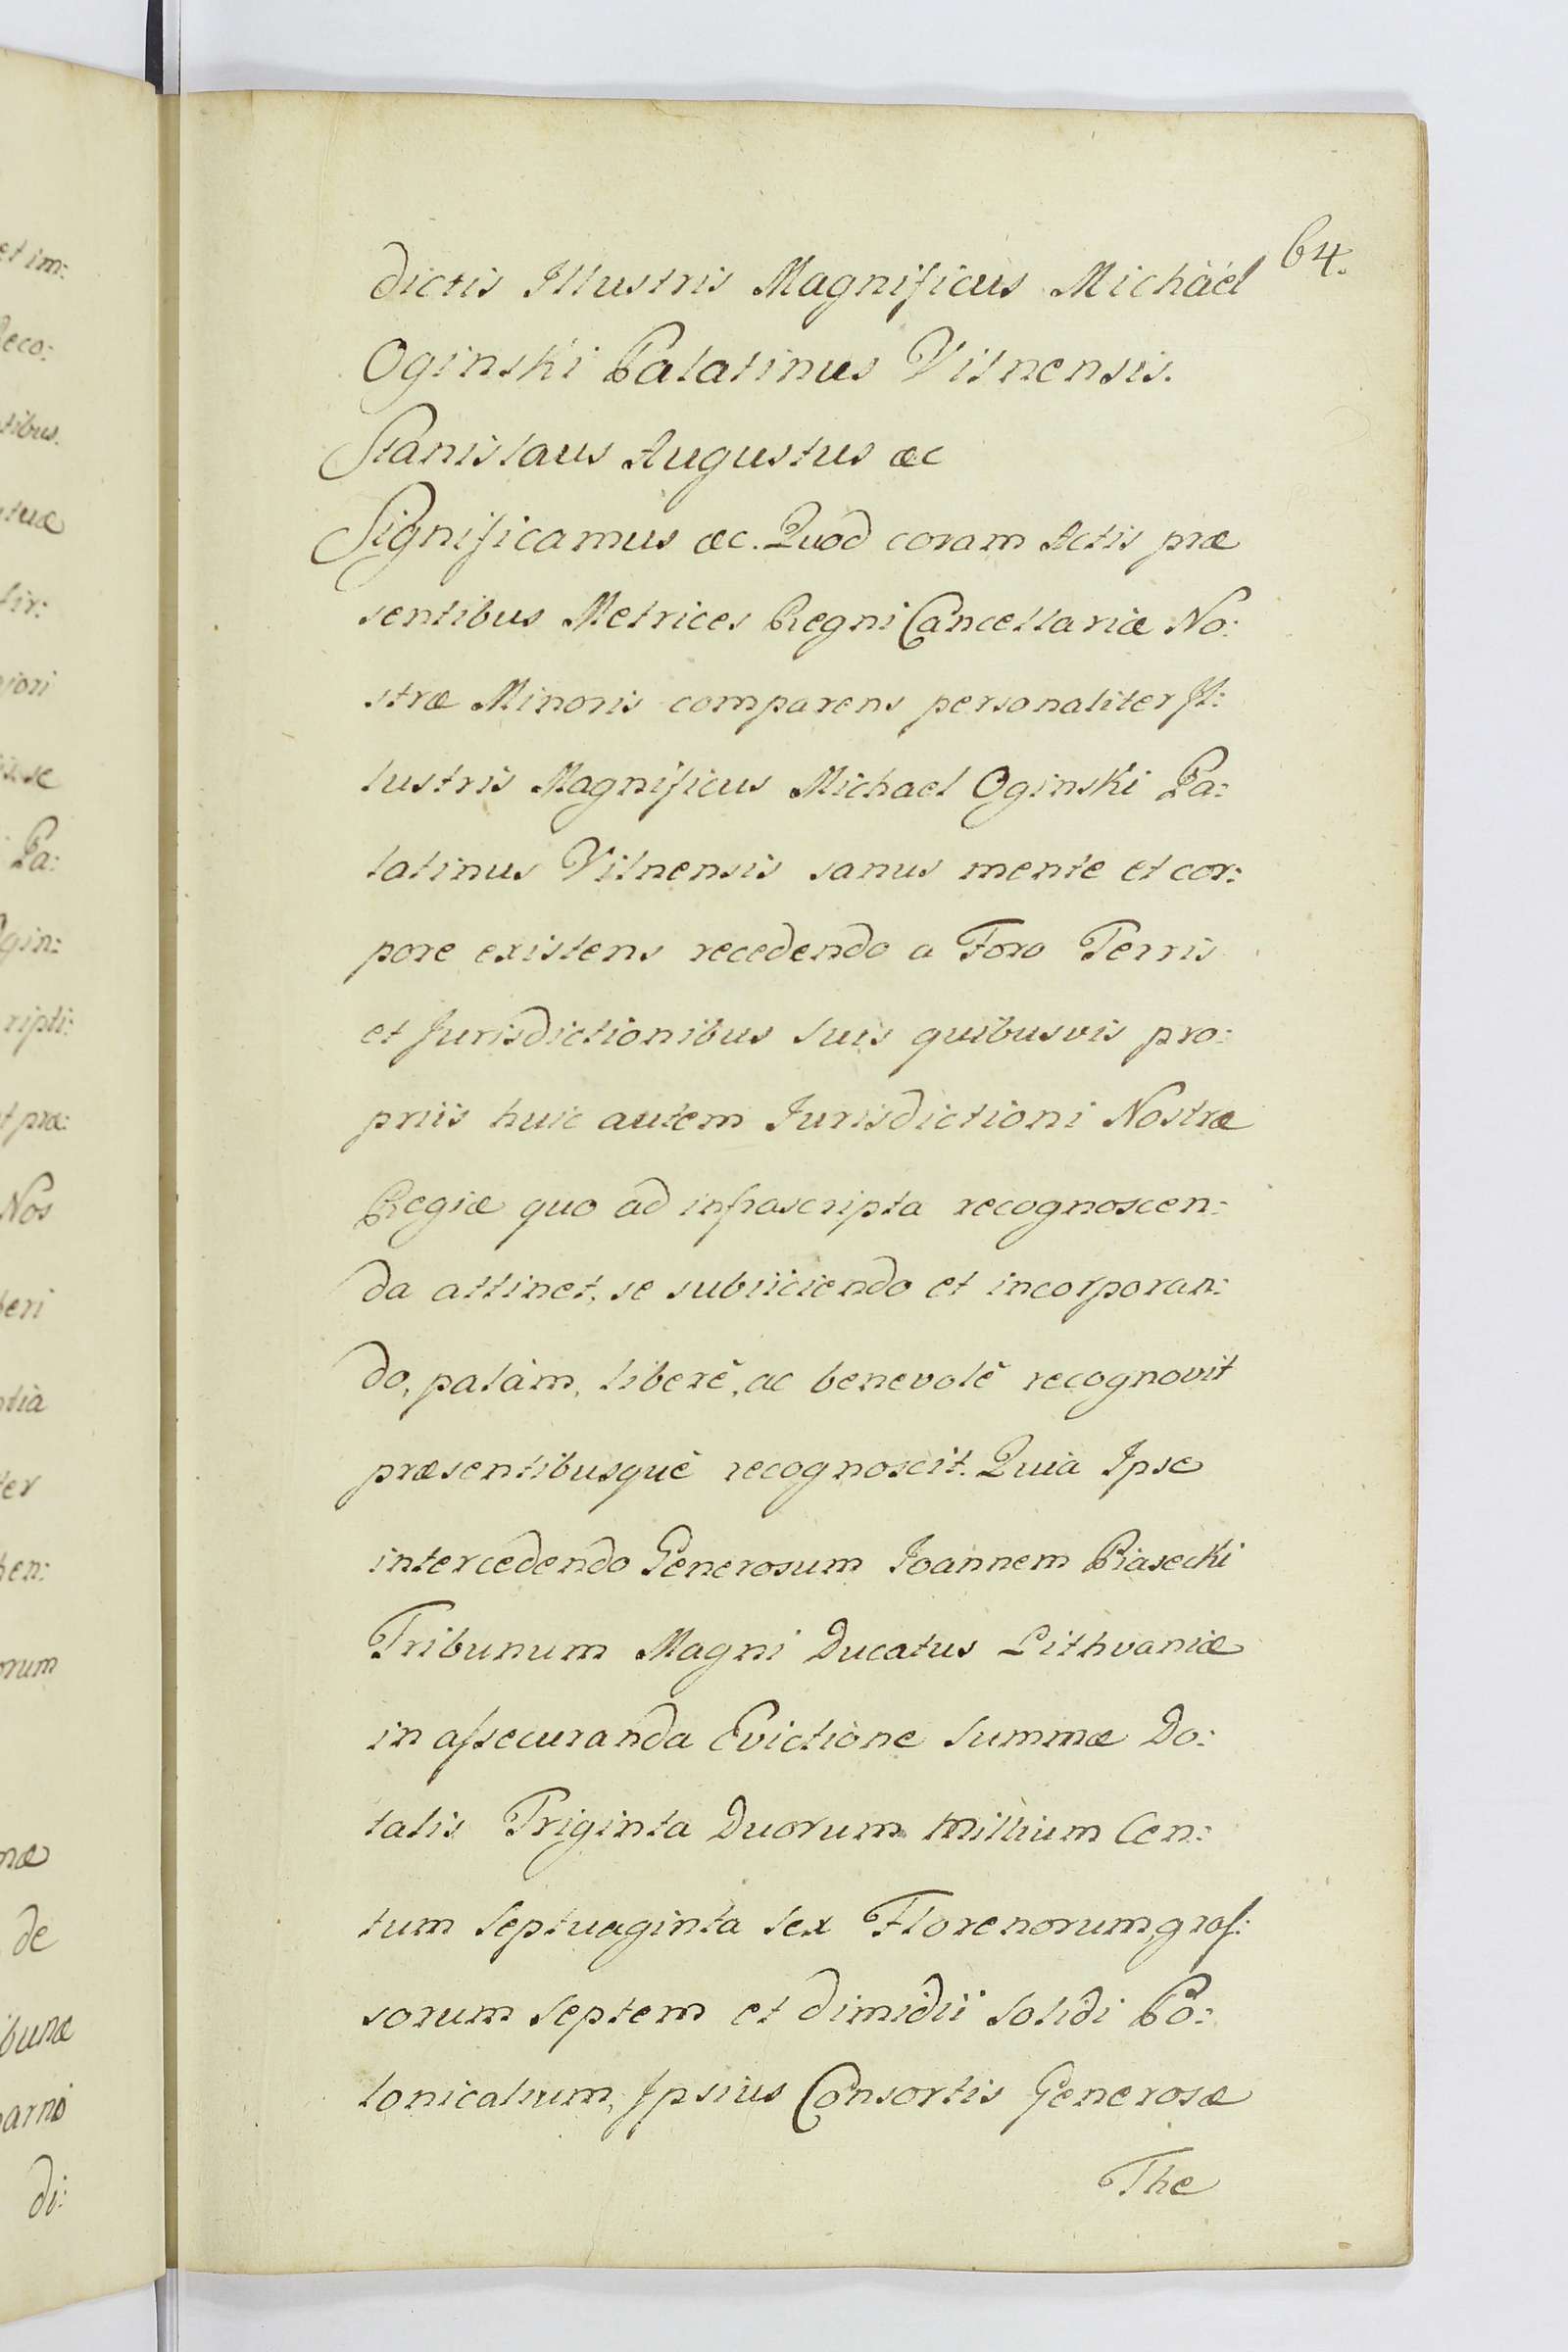 64.
dictis Illustris Magnificus Michaël
Oginski Palatinus Vilnensis.
Stanislaus Augustus &c
Significamus &c. Quod coram Actis præ
sentibus Metrices Regni Cancellariæ No:
stræ Minoris comparens personaliter Il:
lustris Magnificus Michael Oginski Pa:
latinus Vilnensis sanus mente et cor:
pore existens recedendo a Foro Terris
et Jurisdictionibus suis quibusvis pro:
priis huic autem Jurisdictioni Nostræ
Regiæ quo ad infrascripta recognoscen:
da attinet, se subiiciendo et incorporan:
do, palàm, liberè, ac benevolè recognovit
præsentibusquè recognoscit. Quia Ipse
intercedendo Generosum Joannem Piasecki
Tribunum Magni Ducatus Lithvaniæ
in assecuranda Evictione Summæ Do:
talis Triginta Duorum Millium Cen:
tum Septuaginta Sex Florenorum, gros:
sorum Septem et dimidii Solidi Po:
lonicalium, Ipsius Consortis Generosæ
The
et im:
deco:
tibus.
tuæ
fir:
jori
Pa:
gin:
ripti:
t præ:
Nos
beri
ntia
ter
hen:
orum
næ
de
ibunæ
di: